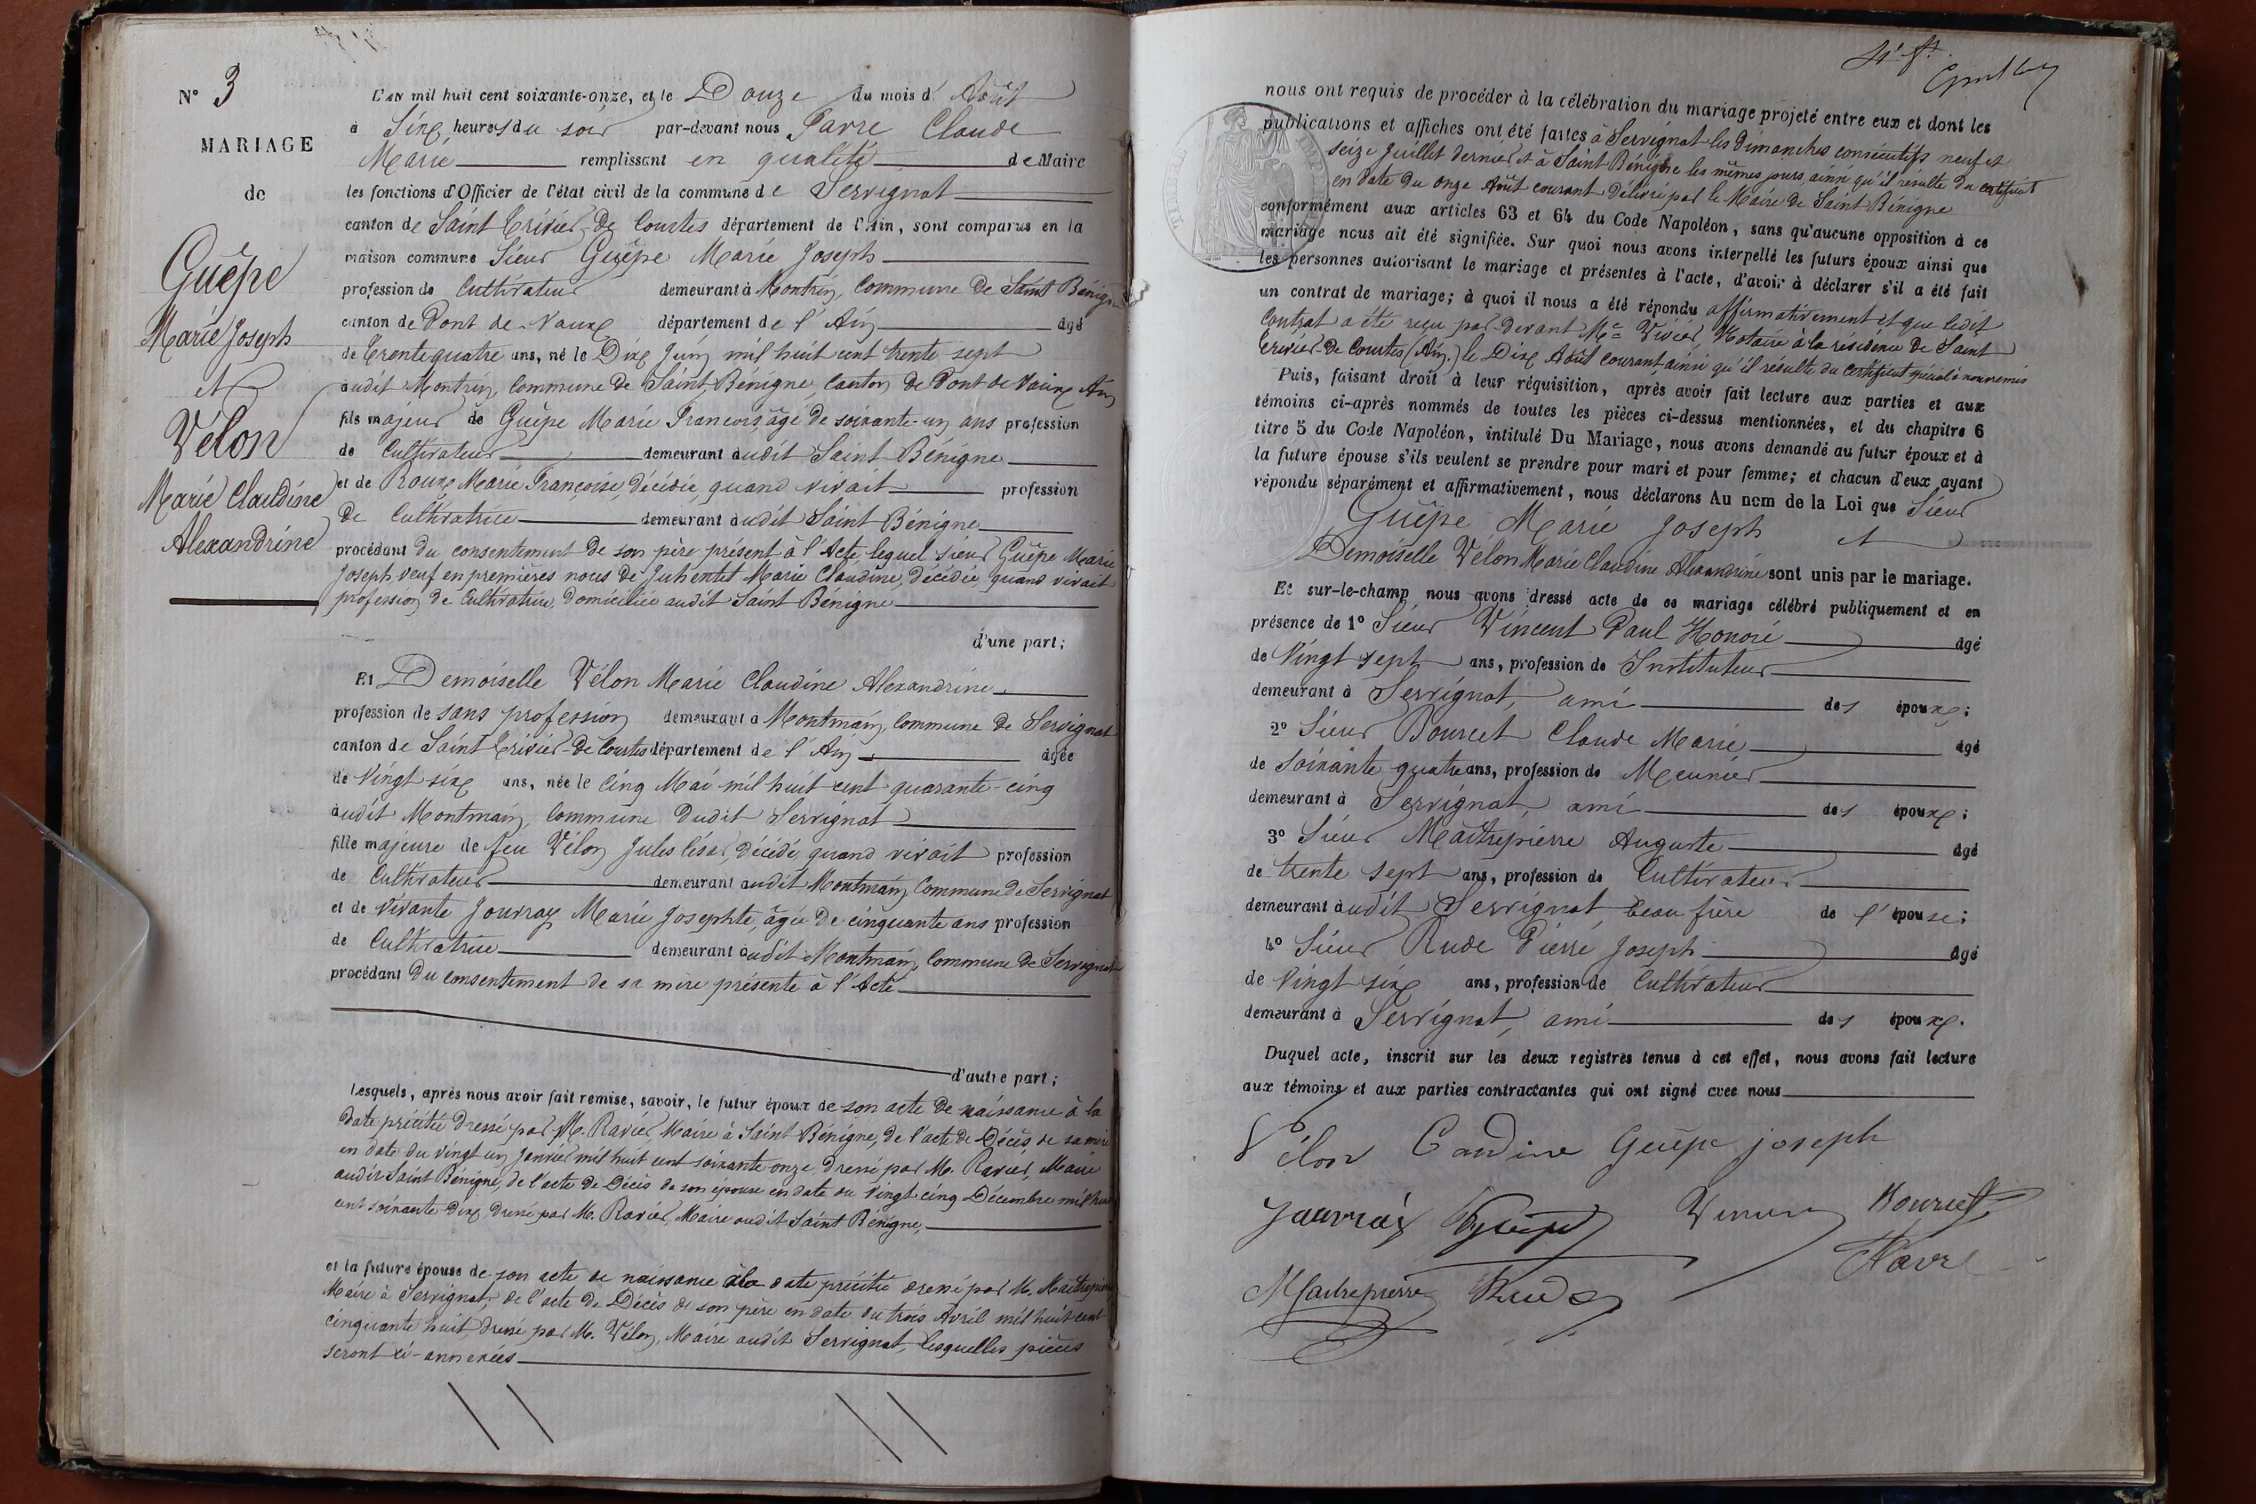 N° 3
MARIAGE
de
Guêpe
Marie Joseph
et
Vélon
Marie Claudine
Alexandrine
L'an mil huit cent soixante-onze, et le Douze du mois d'Août
à Six heures du soir par-devant nous Favre Claude
Marie remplissant en qualité de Maire
les fonctions d'Officier de l'état civil de la commune de Servignat
canton de Saint Trivier-de Courtes département de l'Ain, sont comparus en la
maison commune Sieur Guêpe Marie Joseph
profession de Cultivateur demeurant à Montrin, Commune de Saint Bénigne
canton de Pont de-Vaux département de l'Ain âgé
de Trente quatre ans, né le Dix Juin mil huit cent trente-sept
audit Montrin, Commune de Saint Bénigne, Canton de Pont de Vaux Ain
fils majeur de Guêpe Marie François, âgé de soixante-un ans profession
de Cultivateur demeurant audit Saint Bénigne
et de Roux Marie Françoise, Décédée, quand vivait profession
de Cultivatrice demeurant audit Saint Bénigne
procédant du consentement de son père présent à l'Acte, lequel sieur Guêpe Marie
Joseph, veuf en premières noces de Juhentet Marie Claudine, décédée, quand vivait
profession de Cultivatrice, domiciliée audit Saint Bénigne
d'une part;
Et Demoiselle Vélon Marie Claudine Alexandrine
profession de sans profession demeurant à Montmain, Commune de Servignat
canton de Saint Trivier-de Courtes département de l'Ain âgée
de Vingt six ans, née le Cinq Mai mil huit cent quarante-cinq
audit Montmain, Commune dudit Servignat
fille majeure de feu Vélon Jules César, Décédé, quand vivait profession
de Cultivateur demeurant audit Montmain, Commune de Servignat
et de vivante Jouvray Marie Josephte, âgée de cinquante ans profession
de Cultivatrice demeurant audit Montmain, Commune de Servignat
procédant du consentement de sa mère présente à l'Acte
d'autre part;
Lesquels, après nous avoir fait remise, savoir, le futur époux de son acte de naissance à la
date précitée dressé par M. Ravier, Maire à Saint Bénigne, de l'acte de Décès de sa mère
en date du vingt un Janvier mil huit cent soixante onze dressé par M. Ravier, Maire
audit Saint Bénigne, de l'acte de Décès de son épouse en date du vingt cinq Décembre mil huit
cent soixante dix dressé par M. Ravier, Maire audit Saint Bénigne,
et la future épouse de son acte de naissance à la date précitée dressé par M. Maîtrepierre
Maire à Servignat, de l'acte de Décès de son père en date du trois Avril mil huit cent
cinquante huit, dressé par M. Vélon, Maire audit Servignat, lesquelles pièces
seront ci-annexées
nous ont requis de procéder à la célébration du mariage projeté entre eux et dont les
publications et affiches ont été faites à Servignat les Dimanches consécutifs neuf et
seize Juillet dernier et à Saint Bénigne les mêmes jours, ainsi qu'il résulte du certificat
en date du onze Août courant délivré par le Maire de Saint Bénigne
conformément aux articles 63 et 64 du Code Napoléon, sans qu'aucune opposition à ce
mariage nous ait été signifiée. Sur quoi nous avons interpellé les futurs époux ainsi que
les personnes autorisant le mariage et présentes à l'acte, d'avoir à déclarer s'il a été fait
un contrat de mariage; à quoi il nous a été répondu affirmativement et que ledit
Contrat a été reçu par-devant Me Vivier, Notaire à la résidence de Saint
Trivier-de Courtes (Ain.) le Dix Août courant, ainsi qu'il résulte du certificat spécial à nous remis
Puis, faisant droit à leur réquisition, après avoir fait lecture aux parties et aux
témoins ci-après nommés de toutes les pièces ci-dessus mentionnées, et du chapitre 6
titre 5 du Code Napoléon, intitulé Du Mariage, nous avons demandé au futur époux et à
la future épouse s'ils veulent se prendre pour mari et pour femme; et chacun d'eux ayant
répondu séparément et affirmativement, nous déclarons Au nom de la Loi que Sieur
Guêpe Marie Joseph et
Demoiselle Vélon Marie Claudine Alexandrine sont unis par le mariage.
Et sur-le-champ nous avons dressé acte de ce mariage célébré publiquement et en
présence de 1° Sieur Vincent Paul Honoré âgé
de Vingt sept ans, profession de Instituteur
demeurant à Servignat, ami des époux;
2° Sieur Bourcet Claude Marie âgé
de Soixante quatre ans, profession de Meunier
demeurant à Servignat, ami des époux;
3° Sieur Maîtrepierre Auguste âgé
de trente sept ans, profession de Cultivateur
demeurant audit Servignat, beau frère de l'épouse;
4° Sieur Rude Pierre Joseph âgé
de Vingt six ans, profession de Cultivateur
demeurant à Servignat, ami des époux.
Duquel acte, inscrit sur les deux registres tenus à cet effet, nous avons fait lecture
aux témoins et aux parties contractantes qui ont signé avec nous
Vélon Caudine Guêpe joseph
Jauvray Guêpe Vincent Bourcet
Favre
Maitrepierre Rude